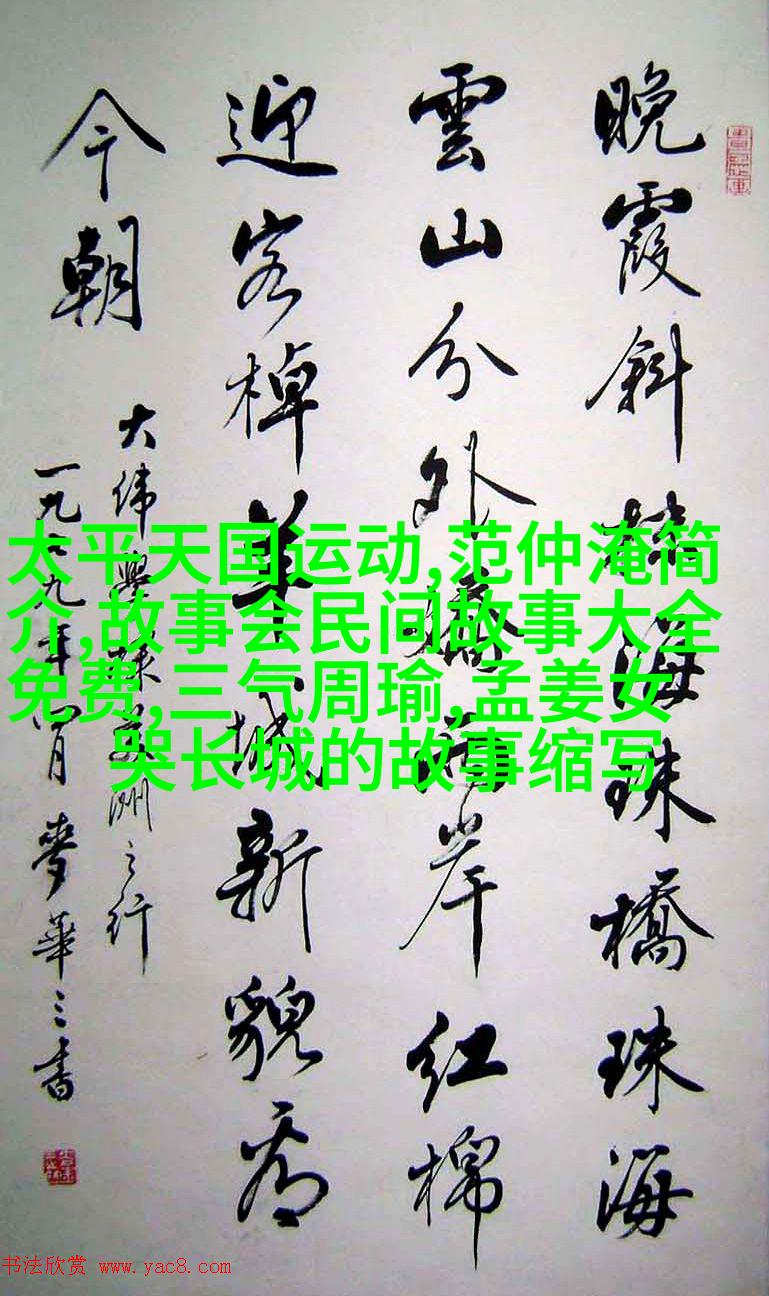 晚霞斜海珠橋珠海
雲山分外嬌兩岸紅棉
迎客棹羊城新貌看
今朝
大偉學妹之行
一九九年月麥華三書
太平天国运动,范仲淹简
介,故事会民间故事大全
免费,三气周瑜,孟姜女
哭长城的故事缩写
书法欣赏 www.yac8.com